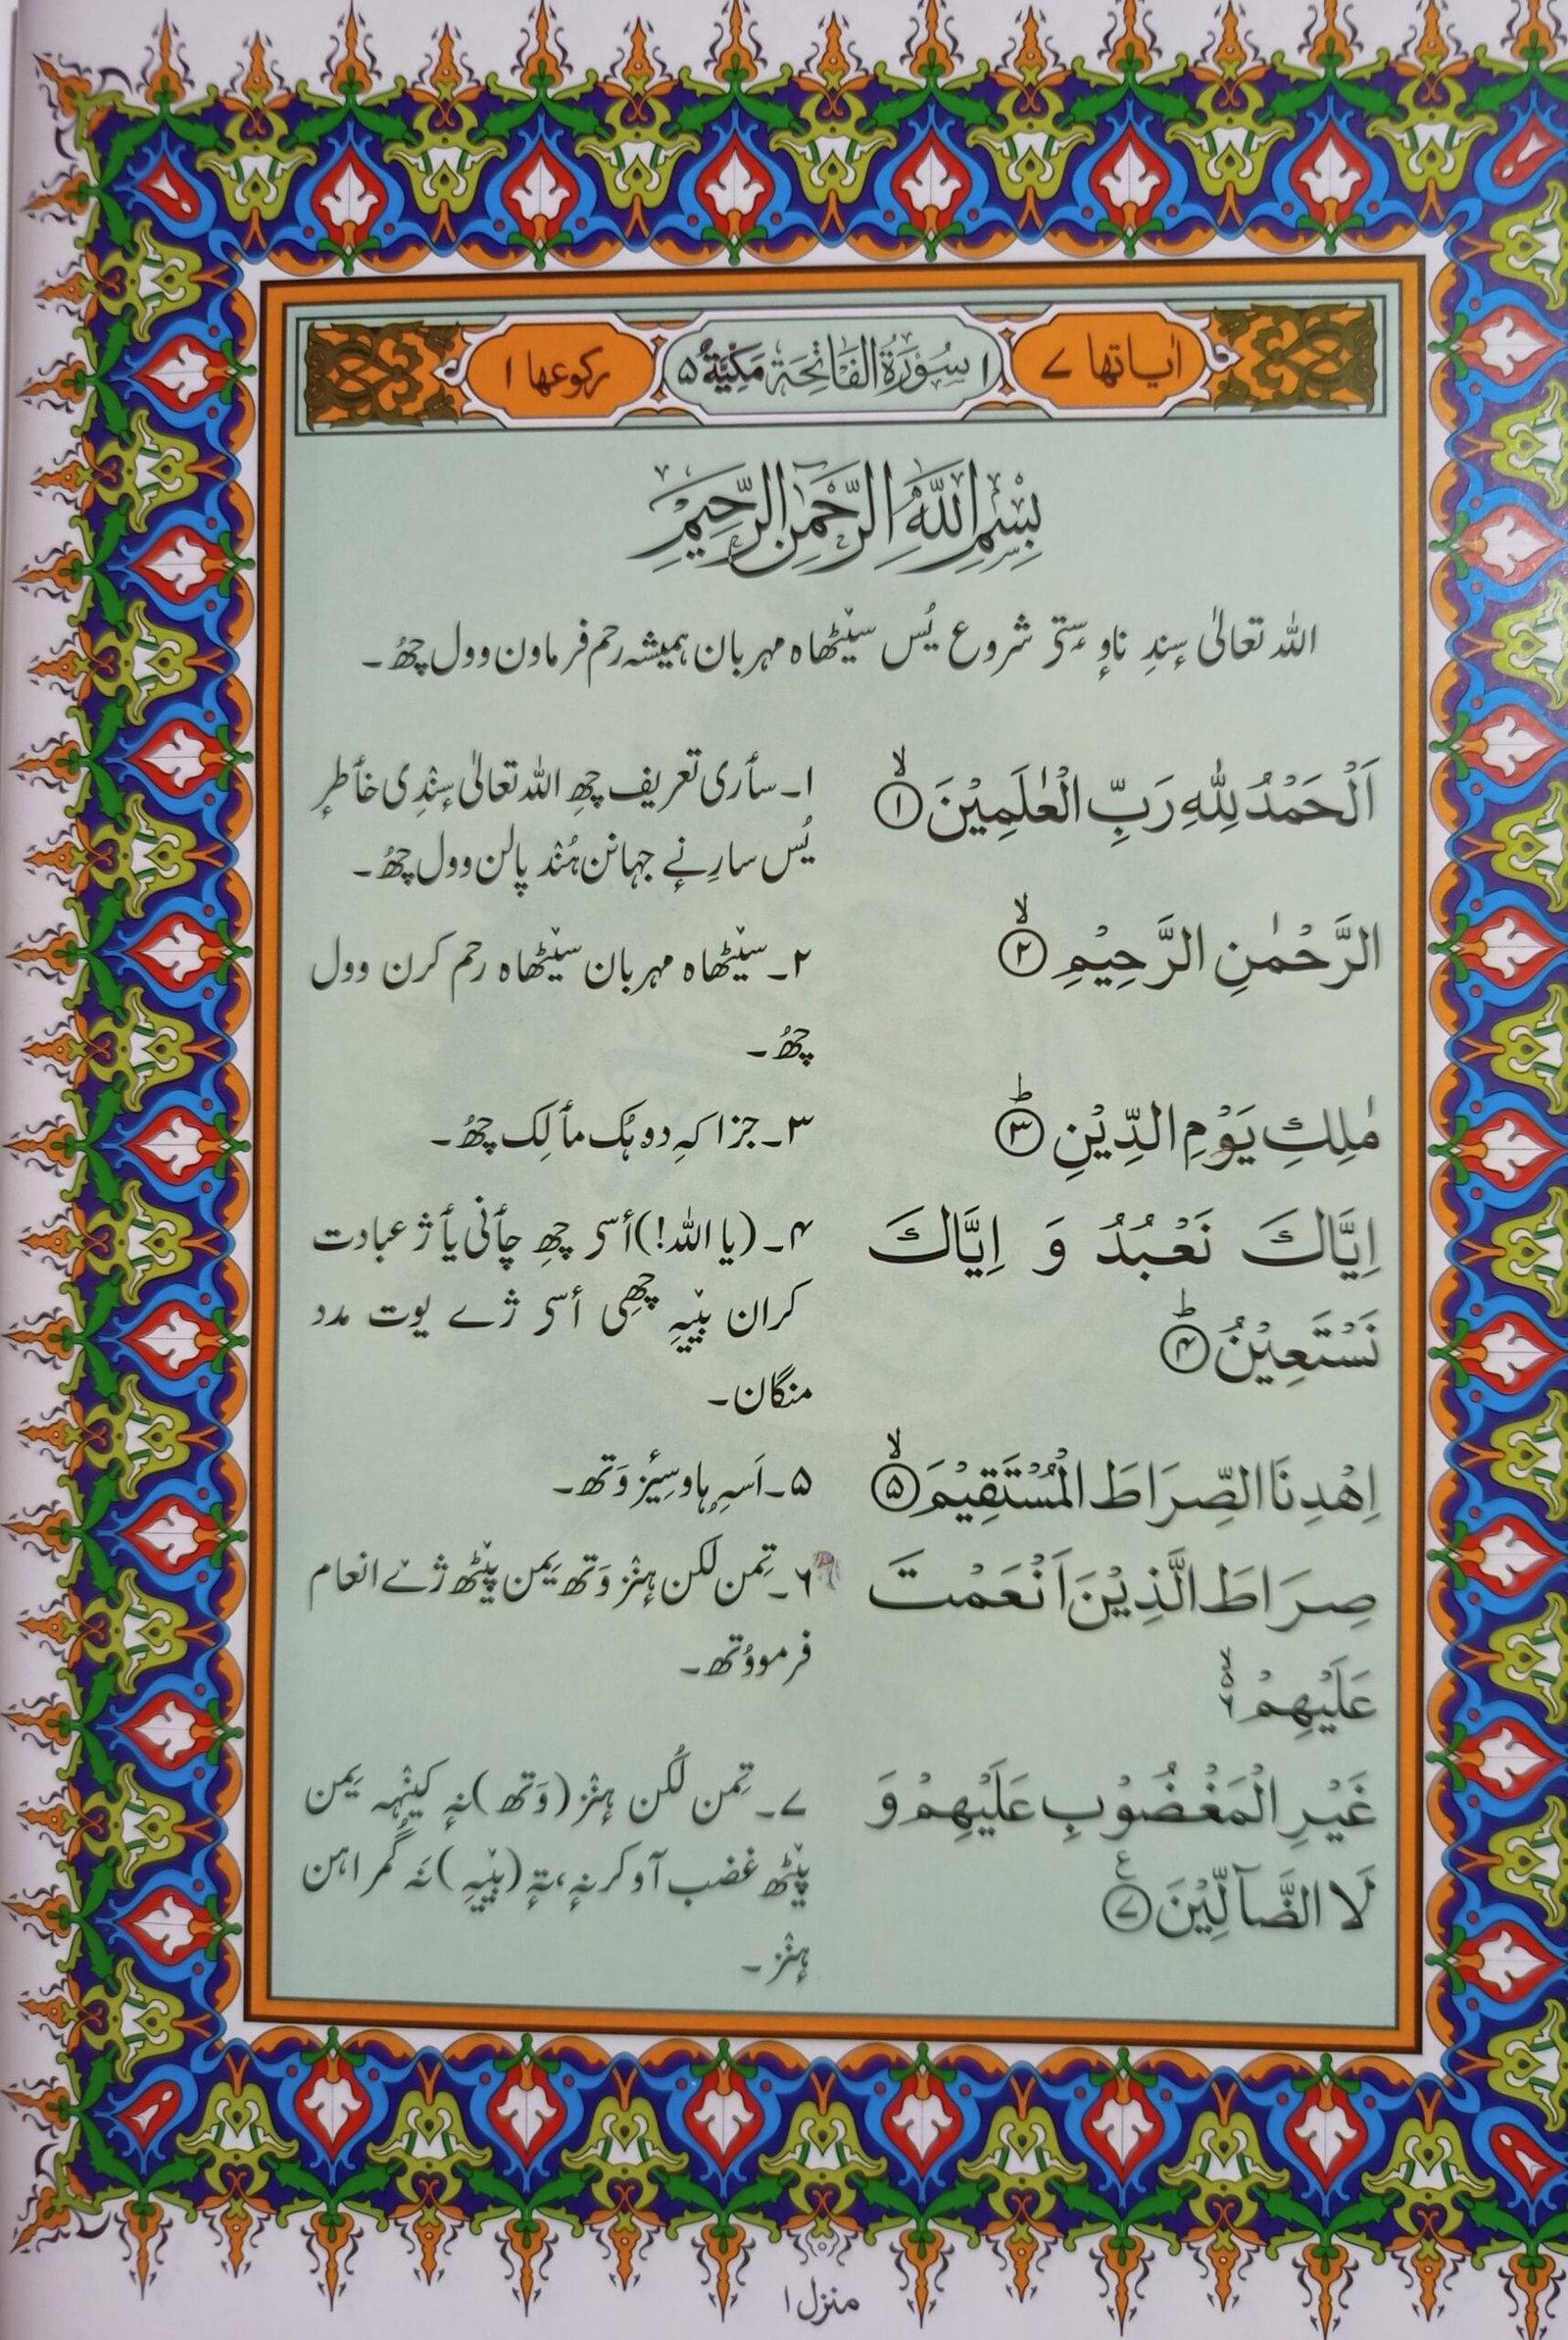 اٰیاتها ۷
۱ سُوْرَةُ الْفَاتِحَةِ مَكِّيَّةٌ ۵
ركوعها ۱
بِسْمِ اللّٰهِ الرَّحْمٰنِ الرَّحِيْمِ
اللہ تعالیٰ سٕندِ ناوٕ سٕتؠ شروع یُس سیٚٹھاہ مہربان ہمیشہ رحم فرماون وول چھُ۔
اَلْحَمْدُ لِلّٰهِ رَبِّ الْعٰلَمِيْنَ ۙ‏﴿۱﴾
۱۔ سأری تعریف چھِ اللہ تعالیٰ سٕنٛدی خأطرٕ
یُس سارِنے جہانن ہُنٛد پالن وول چھُ۔
الرَّحْمٰنِ الرَّحِيْمِ ۙ‏﴿۲﴾
۲۔ سیٚٹھاہ مہربان سیٚٹھاہ رحم کرن وول
چھُ۔
مٰلِكِ يَوْمِ الدِّيْنِ ؕ‏﴿۳﴾
۳۔ جزا کہِ دوہُک مألِک چھُ۔
اِيَّاكَ نَعْبُدُ وَ اِيَّاكَ
نَسْتَعِيْنُ ؕ‏﴿۴﴾
۴۔ (یا اللہ!) أسؠ چھِ چأنی یأژ عبادت
کران بیٚیہِ چھِی أسؠ ژے یوت مدد
منگان۔
اِهْدِنَا الصِّرَاطَ الْمُسْتَقِيْمَ ۙ‏﴿۵﴾
۵۔ اَسہِ ہاو سیٔز وَتھ۔
صِرَاطَ الَّذِيْنَ اَنْعَمْتَ
عَلَيْهِمْ ۙ۬ۦ۶
۶۔ تِمن لکن ہٕنٛز وَتھ یَمن پؠٹھ ژےٚ انعام
فرموٗوُتھ۔
غَيْرِ الْمَغْضُوْبِ عَلَيْهِمْ وَ
لَا الضَّآلِّيْنَ ۧ‏﴿۷﴾
۷۔ تِمن لُکن ہٕنٛز (وَتھ) نہٕ کینٛہہ یَمن
پؠٹھ غضب آو کرنہٕ، تہٕ (بیٚیہِ) نَہ گُمراہن
ہٕنٛز۔
منزل ۱